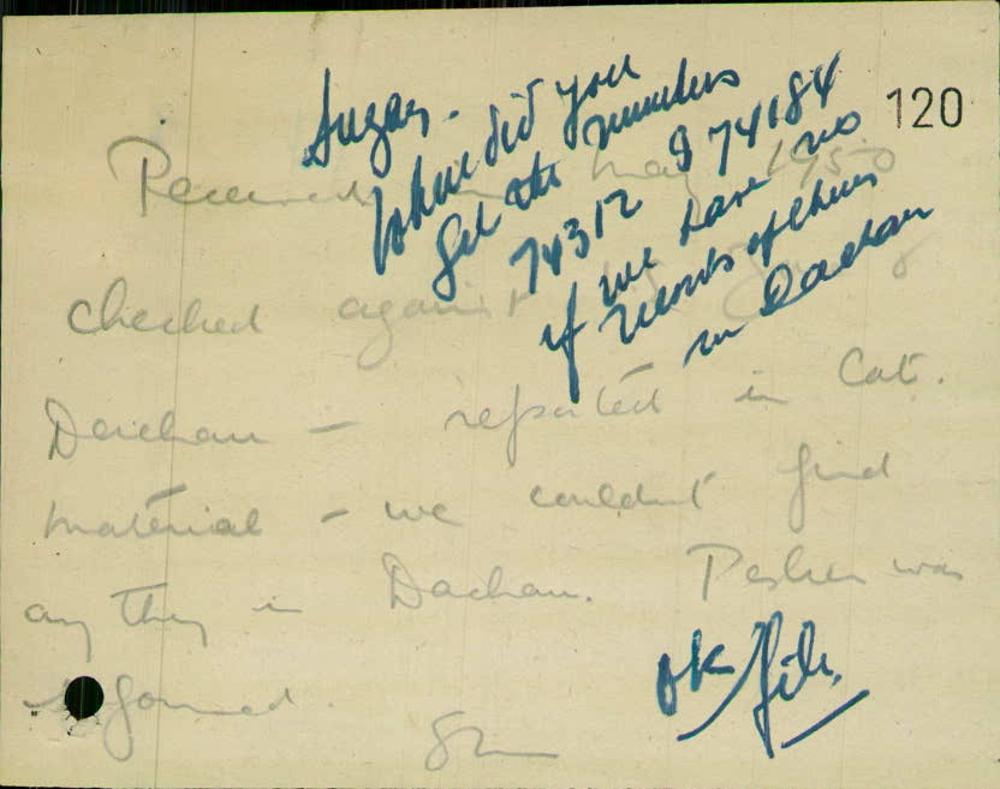 120
Suzan -
Where did you
get the numbers
74312 & 74184
if we have no
records of them
in Dachau
Received in May 1950
checked against by
Dachau - reported in Cat.
material - we couldn't find
any thing in Dachau. Pesher was
informed.
OK file.